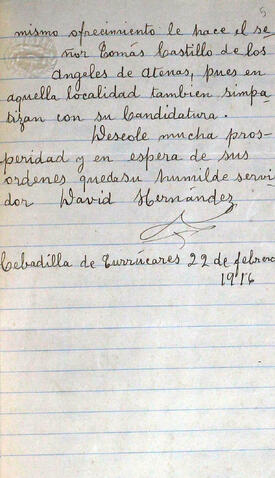 5
mismo ofrecimiento le hace el se
ñor Tomás Castillo de los
Angeles de Atenas, pues en
aquella localidad tambien simpa
tizan con su Candidatura.
Deseole mucha pros-
peridad y en espera de sus
ordenes quedasu humilde servi
dor David Hernández
Cebadilla de Turrúcares 22 de febrero
1916